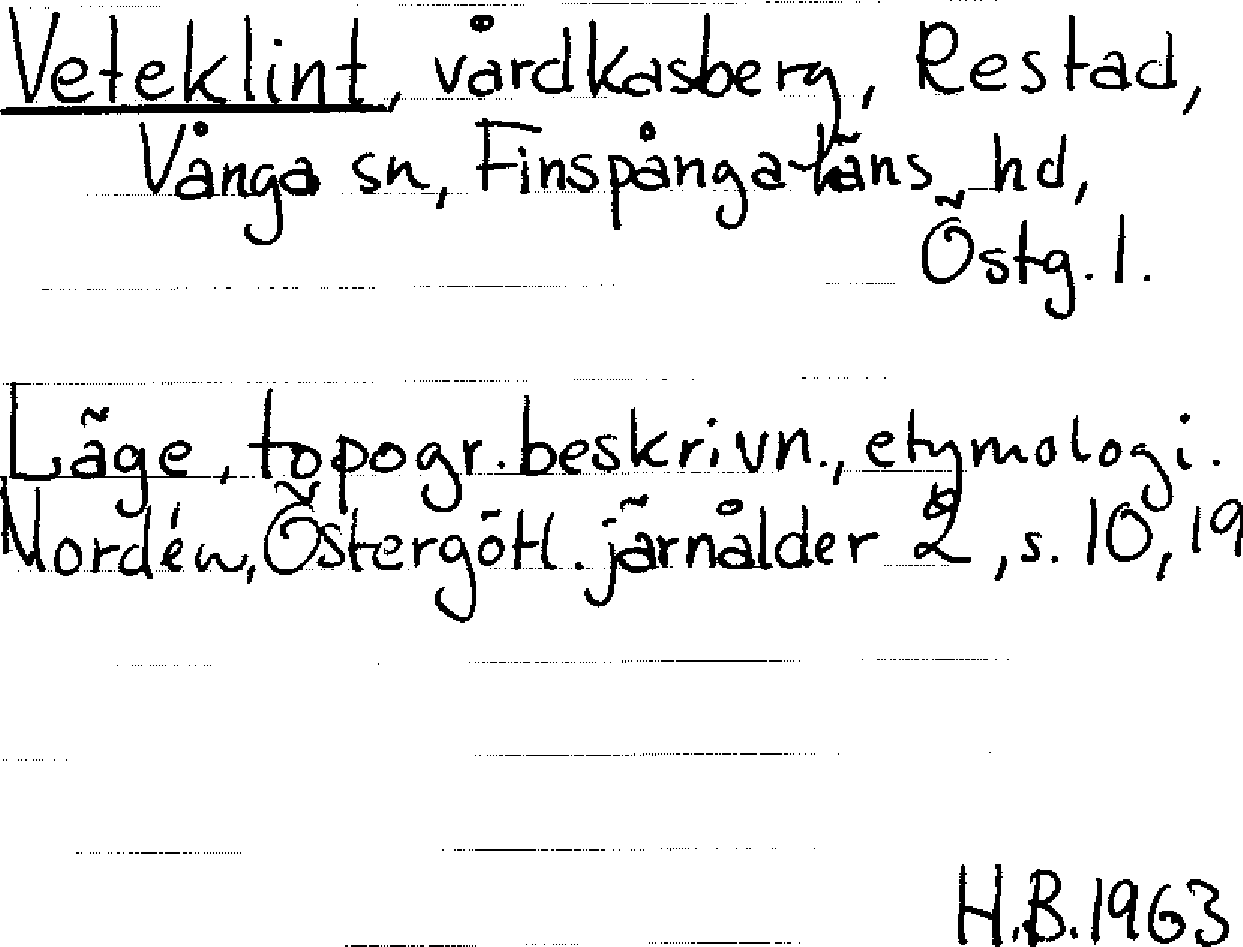 Veteklint, vårdkasberg, Restad,
Vånga sn, Finspånga läns hd,
Östg. l.
Läge, topogr. beskrivn., etymologi.
Nordén, Östergötl. järnålder 2, s. 10, 19
H.B. 1963